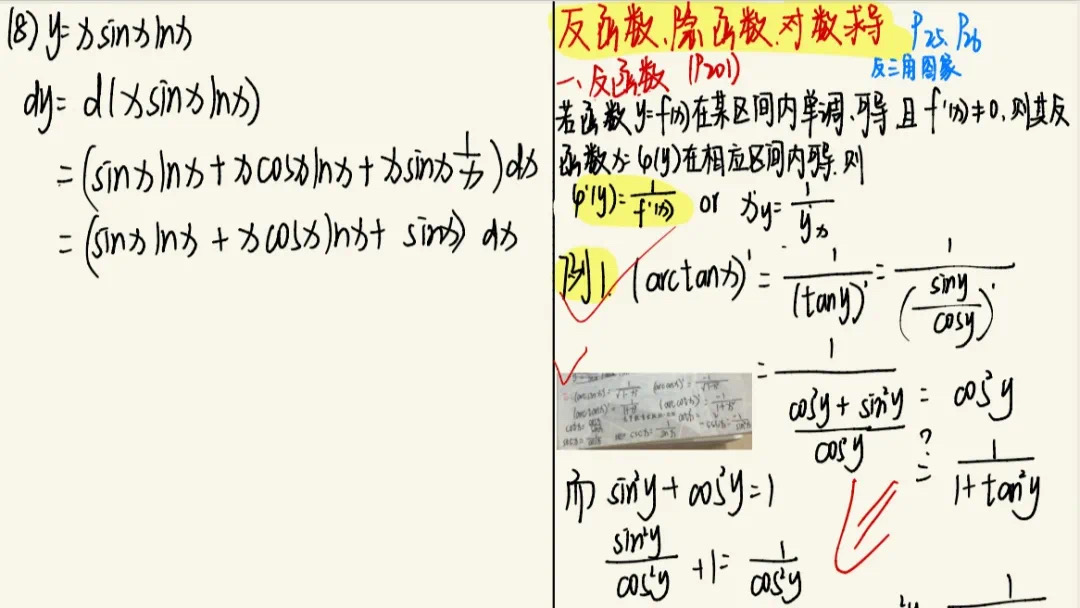 (8) y=xsinxlnx
dy= d(xsinxlnx)
=(sinxlnx+xcosxlnx+xsinx 1/x)dx
=(sinxlnx+xcosxlnx+ sinx) dx
反函数、隐函数、对数求导 P25、P26
反三角图象
一、反函数 (P201)
若函数y=f(x)在某区间内单调、可导 且 f'(x)≠0,则其反
函数x=φ(y)在相应区间内可导.则
φ'(y)=1/f'(x) or x'y=1/y'x
例1. (arctanx)'=1/(tany)'=1/(siny/cosy)'
=1/((cos²y+sin²y)/cos²y)=cos²y
?
=1/(1+tan²y)
而 sin²y+cos²y=1
sin²y/cos²y +1= 1/cos²y